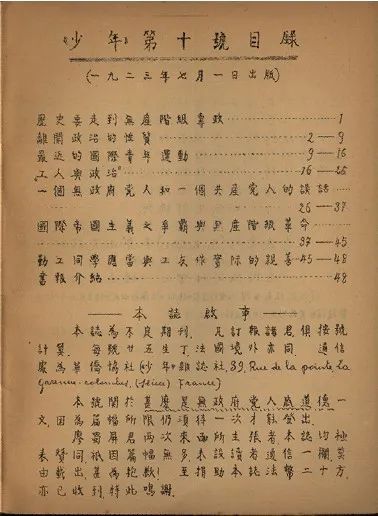 《少年》第十號目錄
(一九二三年七月一日出版)
歷史要走到無產階級專政……1
離開政治的性質……2—9
最近的國際青年運動……9—16
"工人與政治"……16—26
一個無政府党人和一個共產党人的談話
……26—37
國際帝國主義之爭霸與無產階級革命
……37—45
勤工同學應當與工友作實際的親善—45—48
書報介紹……48
——本誌啟事——
本誌為不定期刊，凡訂報諸君俱按號
計算。每號廿五生丁法國境外亦同。通信
處為華僑協社《少年》雜誌社，39, Rue de la pointe La
Garenne-colombes, (Seine) France)
本號關於甚麼是無政府党人底道德一
文，因為篇幅所限仍須待一次才能登出。
廖蜀屏君兩次來函所主張者本誌均極
表贊同祇因篇幅無多未設讀者通信一欄莫
由載出，甚為抱歉！至捐助本誌法幣二十方，
亦已收到特此鳴謝。